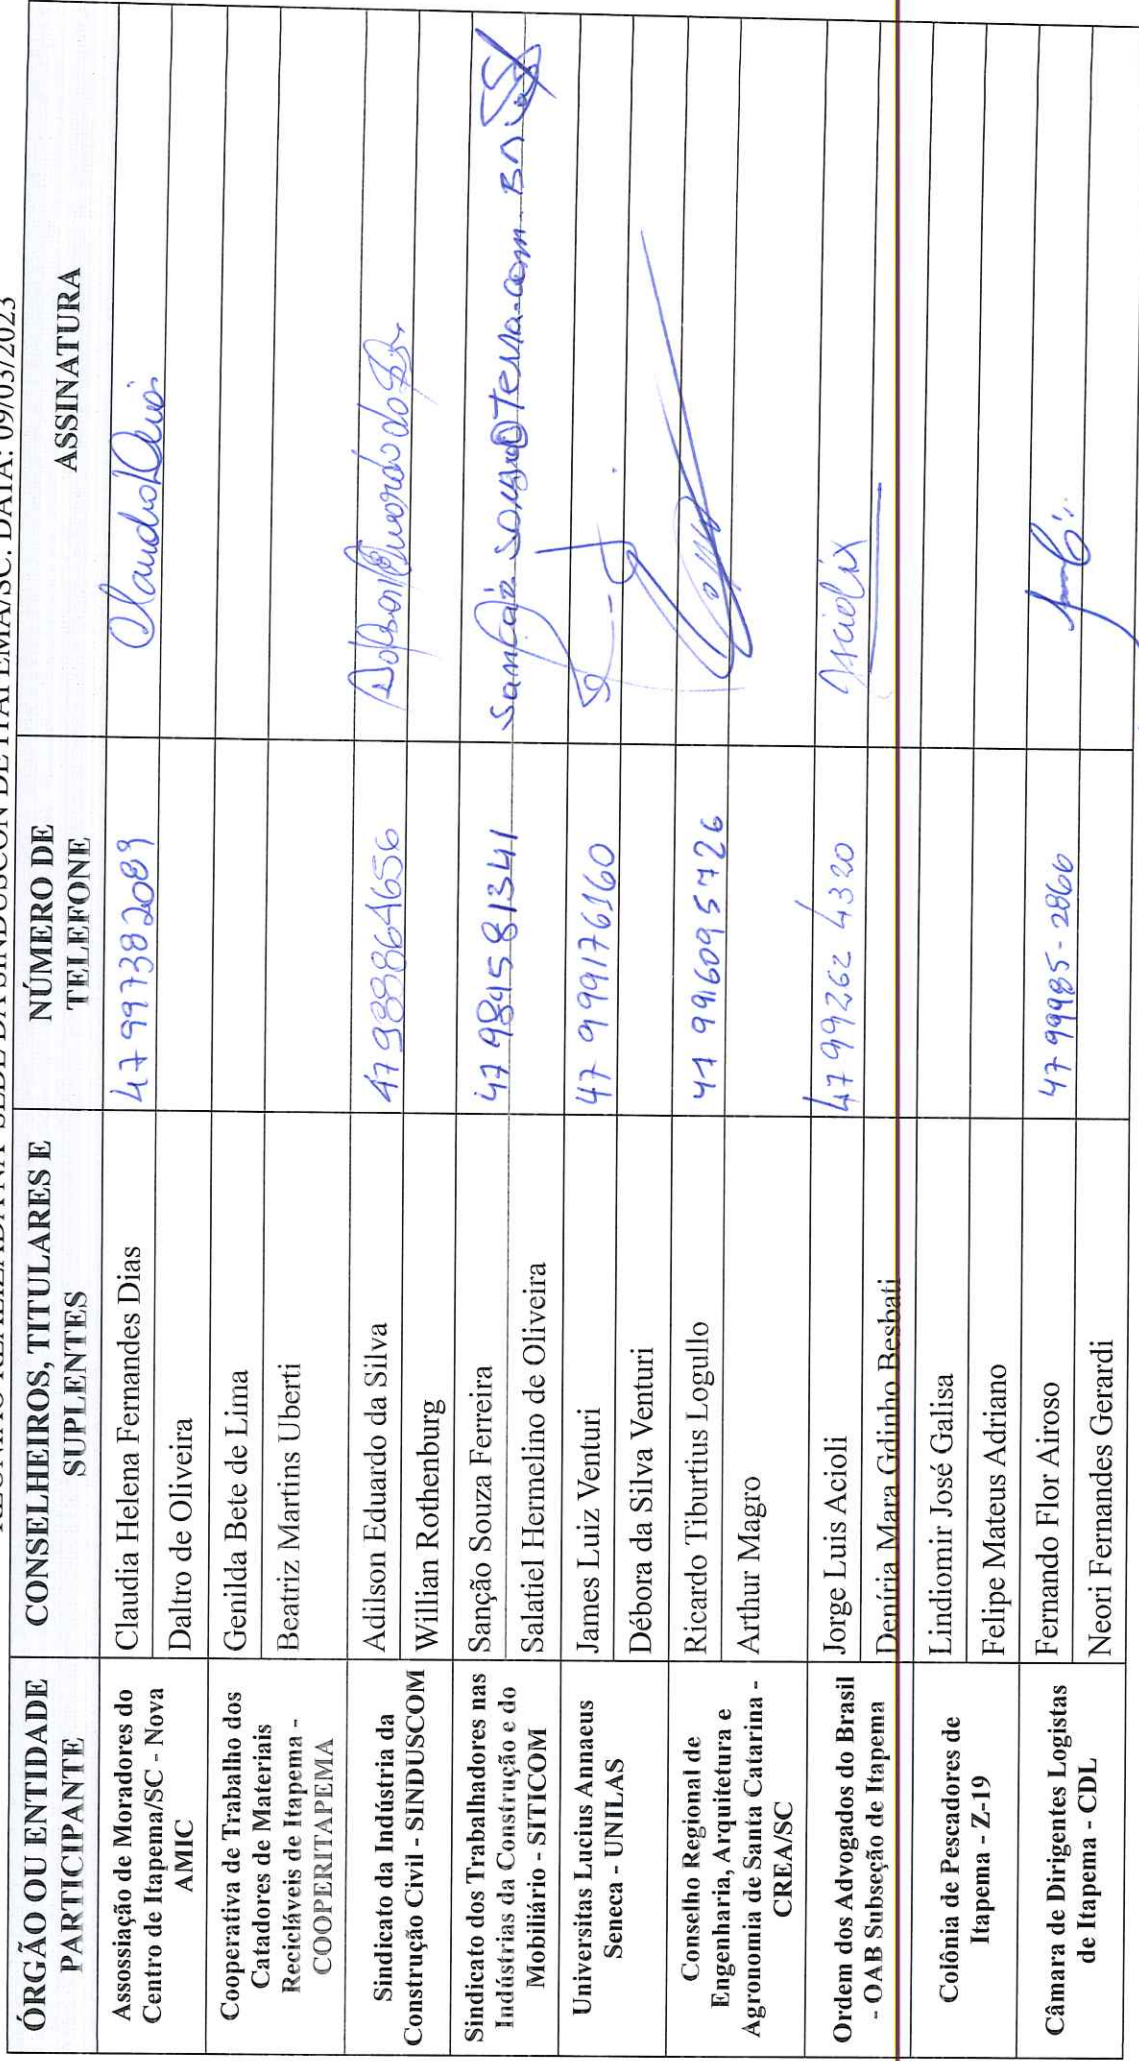 REUNIÃO REALIZADA NA SEDE DA SINDUSCON DE ITAPEMA/SC. DATA: 09/03/2023
ÓRGÃO OU ENTIDADE
PARTICIPANTE
CONSELHEIROS, TITULARES E
SUPLENTES
NÚMERO DE
TELEFONE
ASSINATURA
Assossiação de Moradores do
Centro de Itapema/SC - Nova
AMIC
Claudia Helena Fernandes Dias
47 997382089
Daltro de Oliveira
Cooperativa de Trabalho dos
Catadores de Materiais
Recicláveis de Itapema -
COOPERITAPEMA
Genilda Bete de Lima
Beatriz Martins Uberti
Sindicato da Indústria da
Construção Civil - SINDUSCOM
Adilson Eduardo da Silva
47988864656
Willian Rothenburg
Sindicato dos Trabalhadores nas
Indústrias da Construção e do
Mobiliário - SITICOM
Sanção Souza Ferreira
47 984581341
Salatiel Hermelino de Oliveira
Universitas Lucius Annaeus
Seneca - UNILAS
James Luiz Venturi
47 999176160
Débora da Silva Venturi
Conselho Regional de
Engenharia, Arquitetura e
Agronomia de Santa Catarina -
CREA/SC
Ricardo Tiburtius Logullo
41 9916095726
Arthur Magro
Ordem dos Advogados do Brasil
- OAB Subseção de Itapema
Jorge Luis Acioli
47 99262 4320
Deníria Mara Gdinho Besbati
Colônia de Pescadores de
Itapema - Z-19
Lindiomir José Galisa
Felipe Mateus Adriano
Câmara de Dirigentes Logistas
de Itapema - CDL
Fernando Flor Airoso
47 99985-2866
Neori Fernandes Gerardi